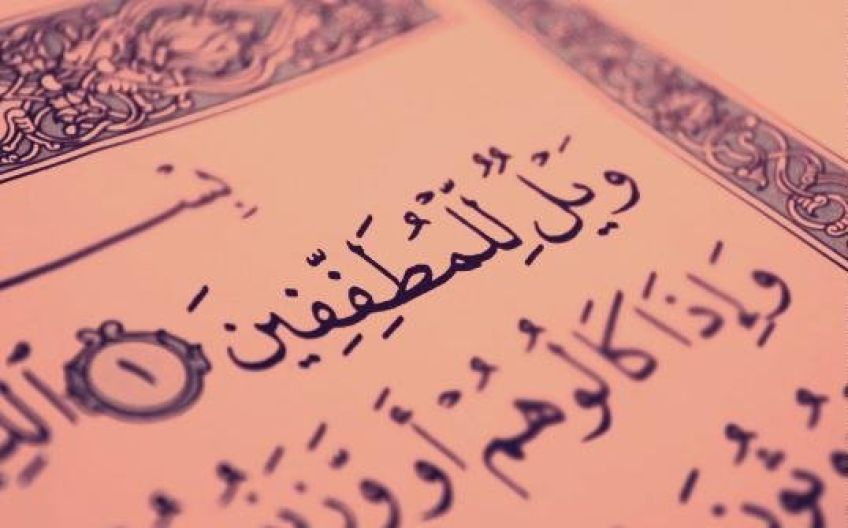 بِسْ
وَيْلٌ لِّلْمُطَفِّفِينَ ١
وَإِذَا كَالُوهُمْ أَو